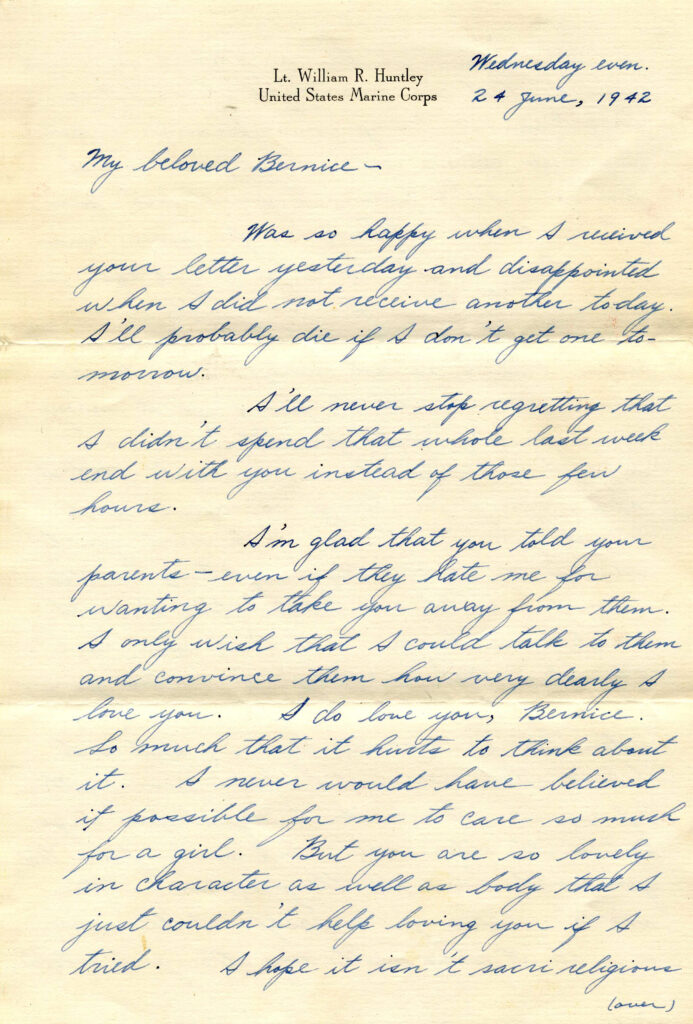 Lt. William R. Huntley
United States Marine Corps
Wednesday even.
24 June, 1942
My beloved Bernice —
Was so happy when I received
your letter yesterday and disappointed
when I did not receive another today.
I'll probably die if I don't get one to-
morrow.
I'll never stop regretting that
I didn't spend that whole last week
end with you instead of those few
hours.
I'm glad that you told your
parents — even if they hate me for
wanting to take you away from them.
I only wish that I could talk to them
and convince them how very dearly I
love you. I do love you, Bernice.
So much that it hurts to think about
it. I never would have believed
it possible for me to care so much
for a girl. But you are so lovely
in character as well as body that I
just couldn't help loving you if I
tried. I hope it isn't sacri religious
(over)